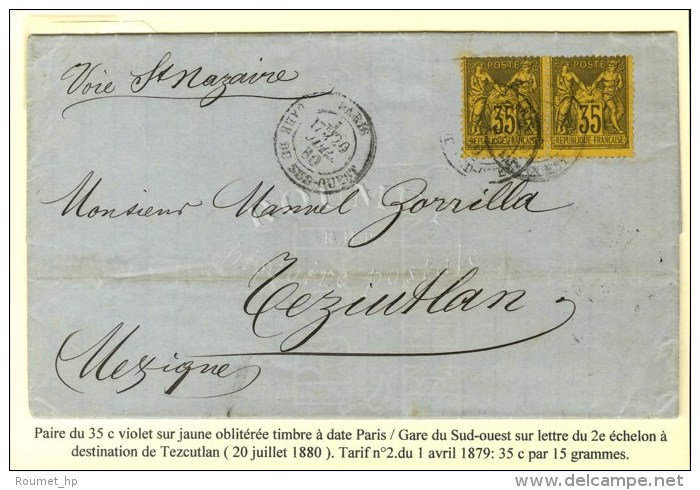 Voie St Nazaire
PARIS
GARE DU SUD-OUEST
JUIL.
80
POSTE POSTE
35 35
REPUBLIQUE FRANÇAISE REPUBLIQUE FRANÇAISE
Monsieur Manuel Zorrilla
Teziutlan
Mexique
Paire du 35 c violet sur jaune oblitérée timbre à date Paris / Gare du Sud-ouest sur lettre du 2e échelon à
destination de Tezcutlan ( 20 juillet 1880 ). Tarif n°2.du 1 avril 1879: 35 c par 15 grammes.
Roumet_hp
delcampe.net